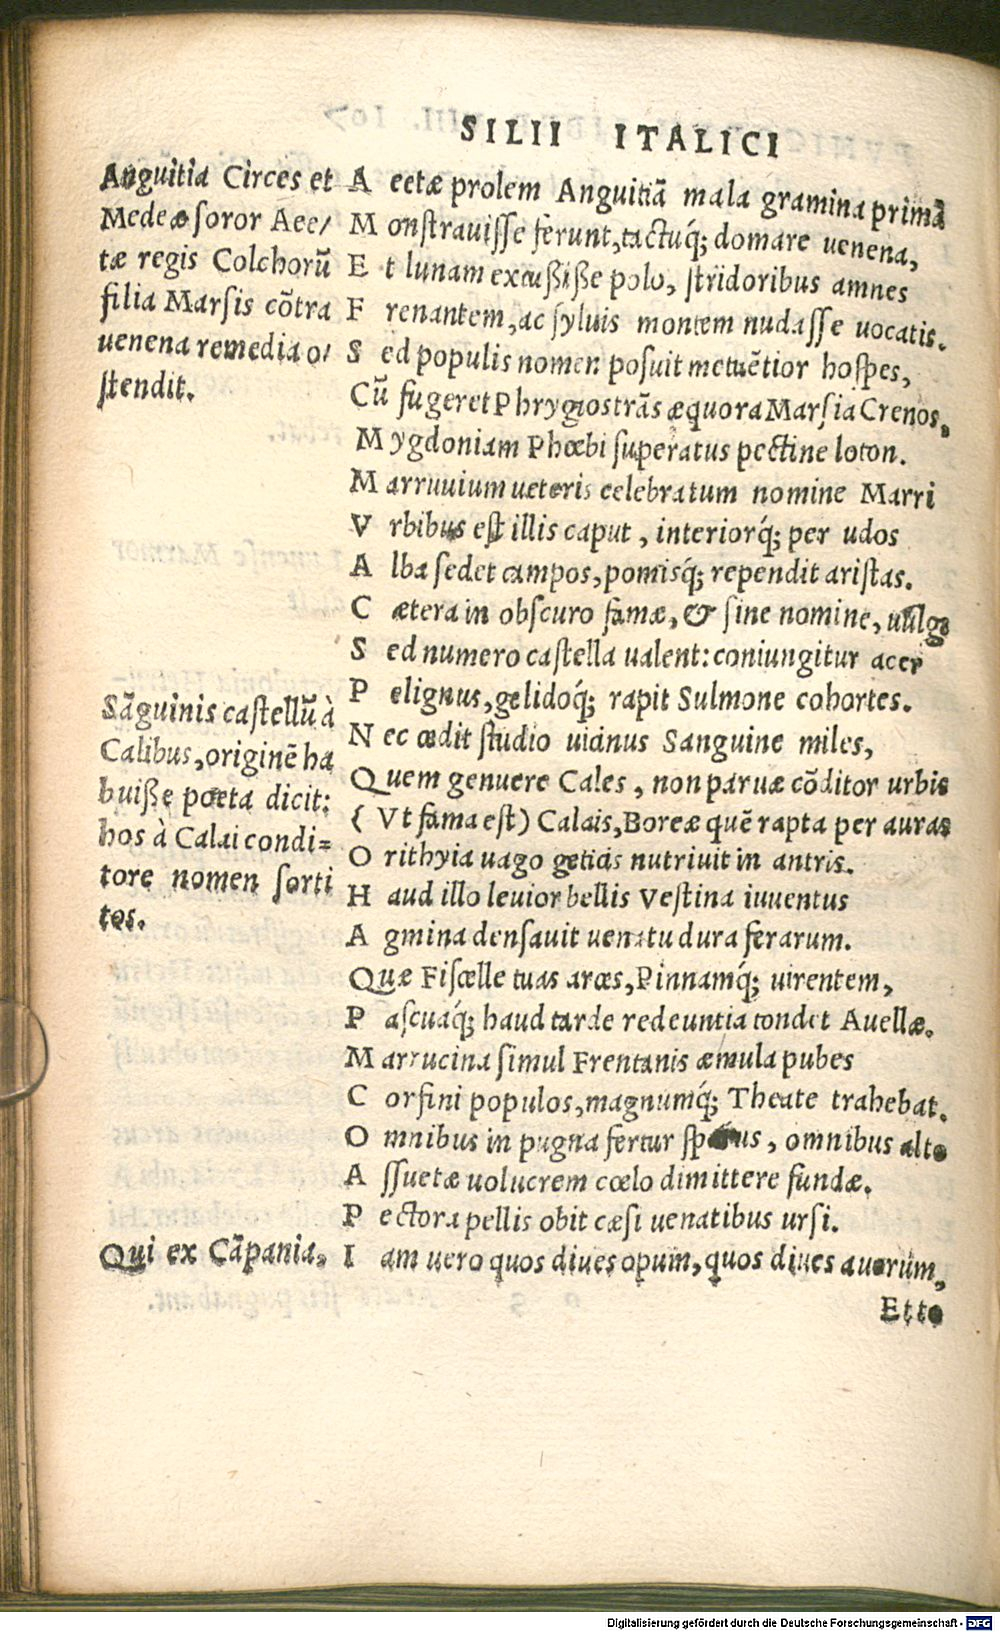 SILII ITALICI
Anguitia Circes et
Medeæ soror Aee/
tæ regis Colchorũ
filia Marsis cõtra
uenena remedia o/
stendit.
A eetæ prolem Anguitiã mala gramina primã
M onstrauisse ferunt, tactuq́; domare uenena,
E t lunam excußiße polo, stridoribus amnes
F renantem, ac syluis montem nudasse uocatis.
S ed populis nomen posuit metuẽtior hospes,
Cũ fugeret Phrygios trãs æquora Marsia Crenos,
M ygdoniam Phœbi superatus pectine loton.
M arruuium ueteris celebratum nomine Marri
V rbibus est illis caput, interiorq́; per udos
A lba sedet campos, pomisq́; rependit aristas.
C ætera in obscuro famæ, & sine nomine, uulgo
S ed numero castella ualent: coniungitur acer
P elignus, gelidoq́; rapit Sulmone cohortes.
Sãguinis castellũ à
Calibus, originẽ ha
buiße poeta dicit:
hos à Calai condi=
tore nomen sorti
tos.
N ec cedit studio uicinus Sanguine miles,
Quem genuere Cales, non paruæ cõditor urbis
( Vt fama est) Calais, Boreæ quẽ rapta per auras
O rithyia uago geticis nutriuit in antris.
H aud illo leuior bellis Vestina iuuentus
A gmina densauit uenatu dura ferarum.
Quæ Fiscelle tuas arces, Pinnamq́; uirentem,
P ascuaq́; haud tarde redeuntia tondet Auellæ.
M arrucina simul Frentanis æmula pubes
C orfini populos, magnumq́; Theate trahebat.
O mnibus in pugna fertur sparus, omnibus alto
A ssuetæ uolucrem cœlo dimittere fundæ.
P ectora pellis obit cæsi uenatibus ursi.
Qui ex Cãpania,
I am uero quos diues opum, quos diues auorum,
Et to
Digitalisierung gefördert durch die Deutsche Forschungsgemeinschaft - DFG